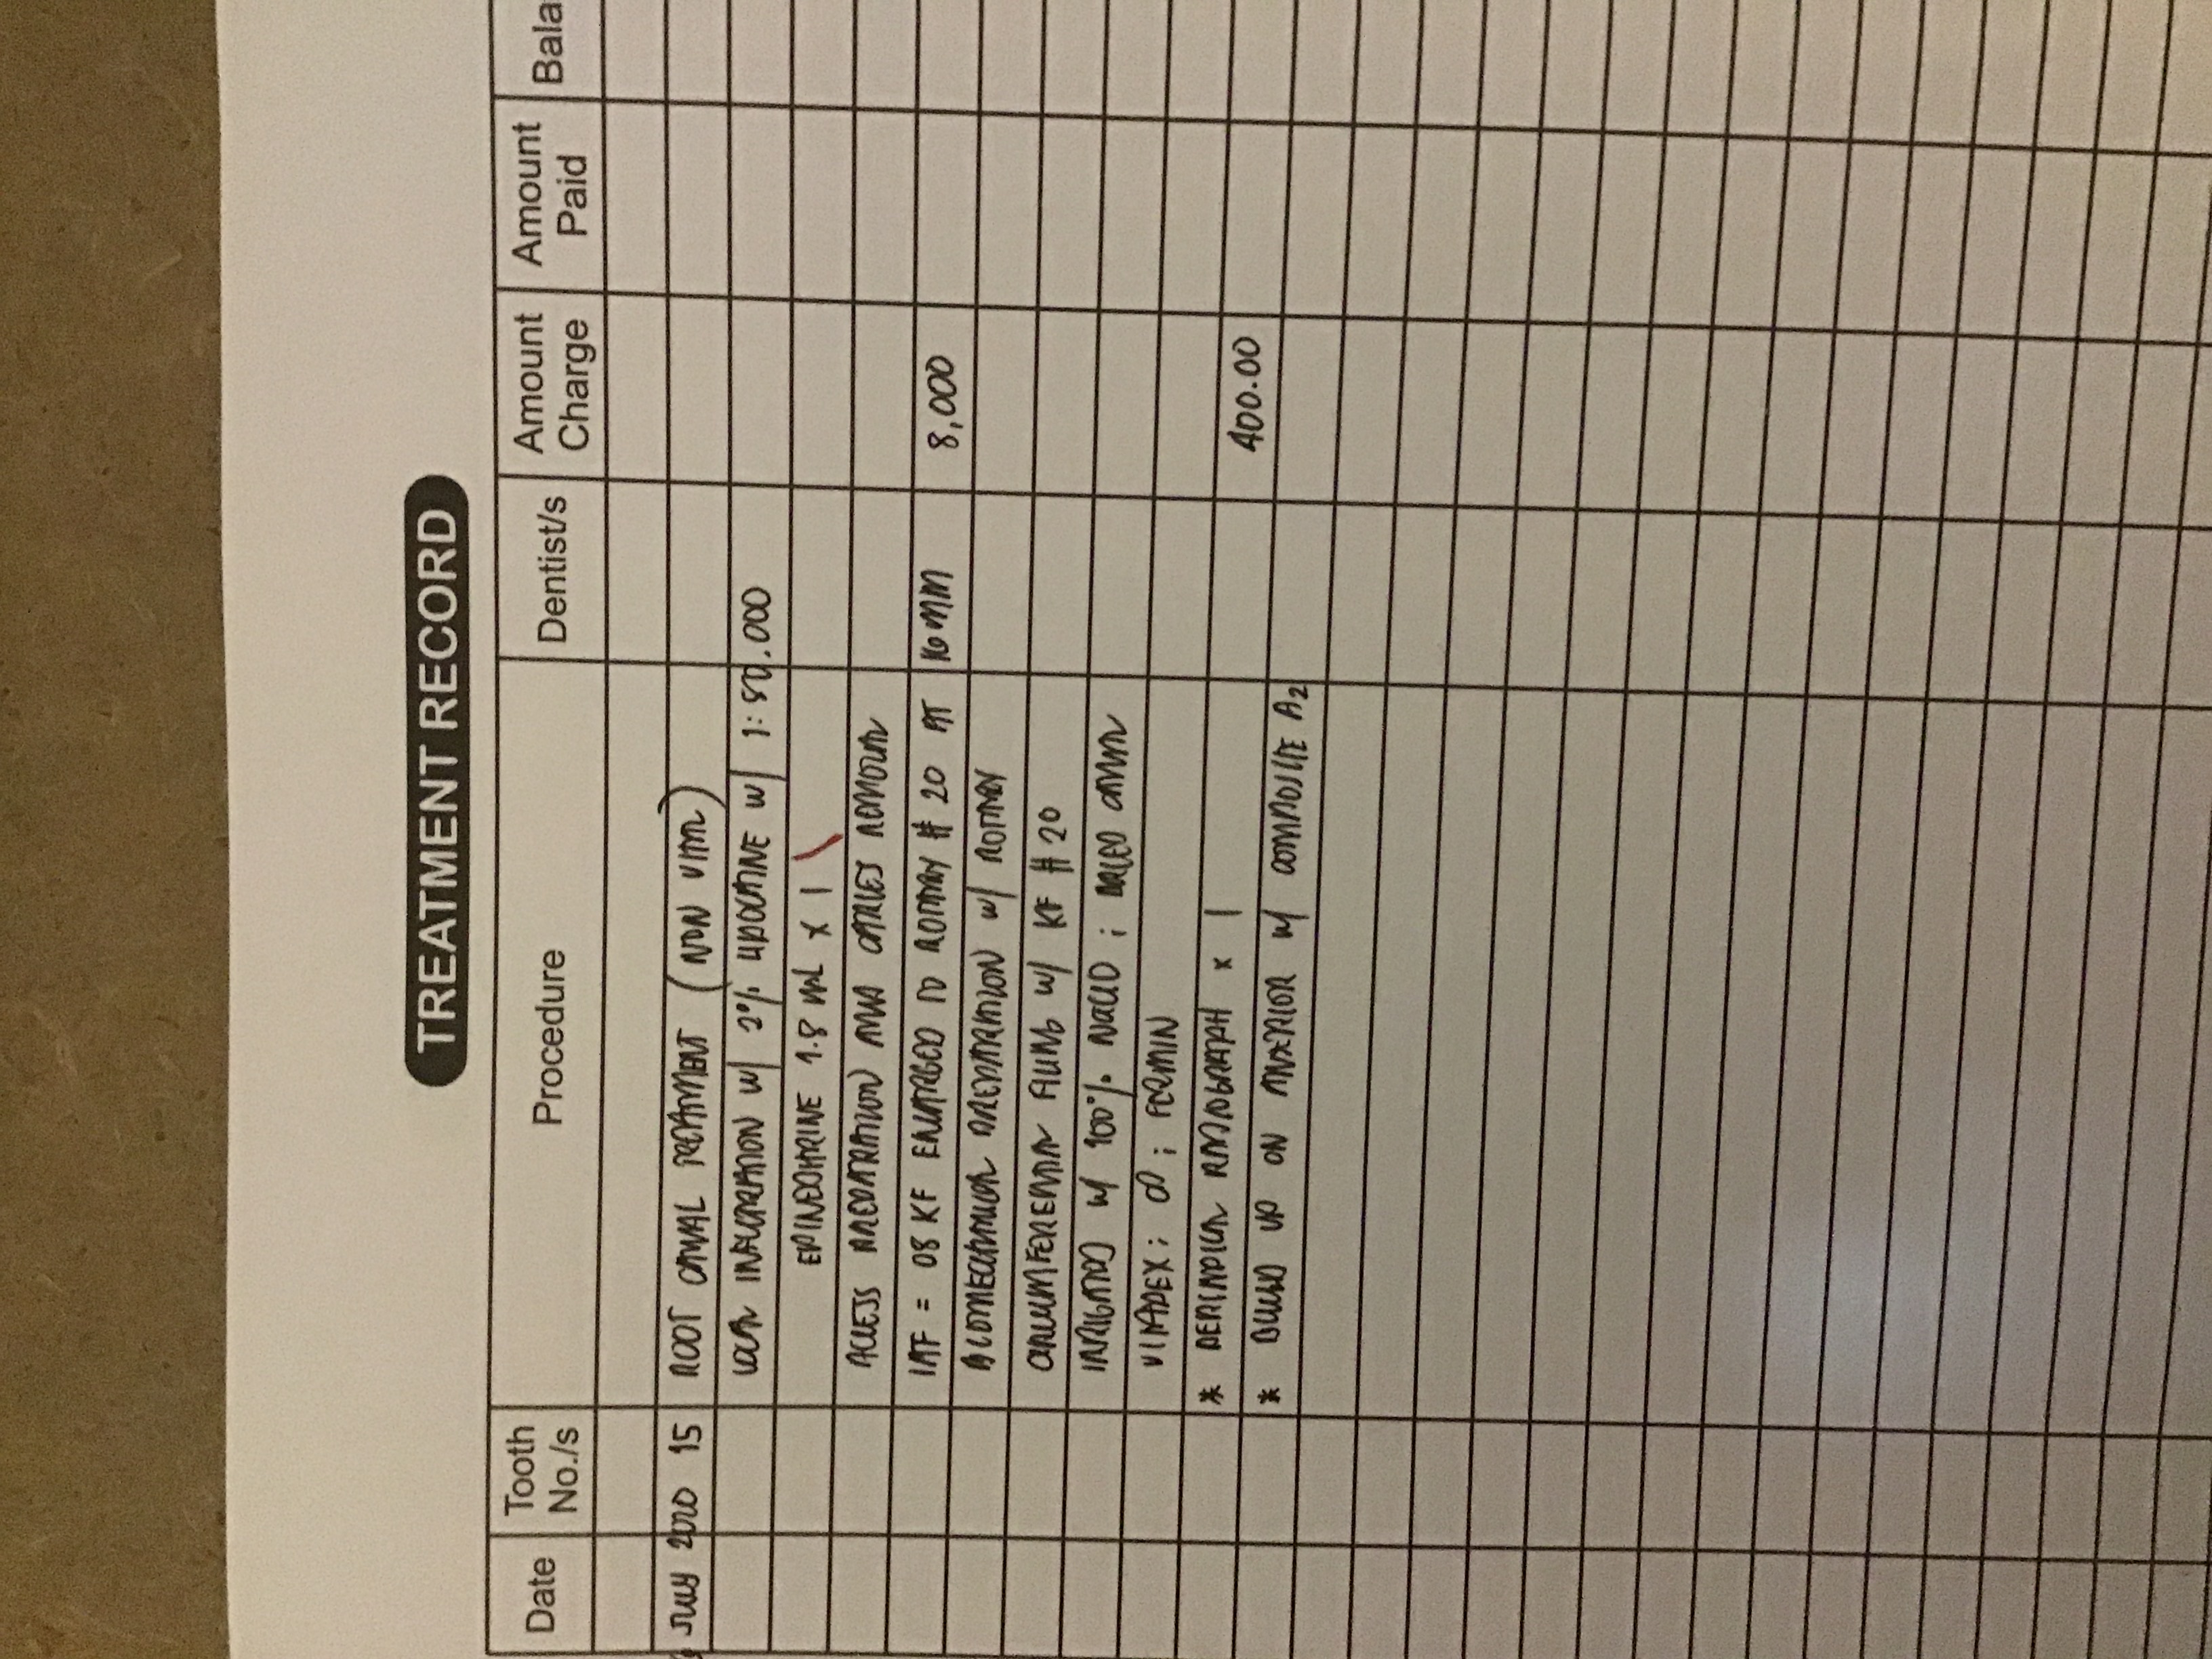 TREATMENT RECORD
Date Tooth No./s Procedure Dentist/s Amount Charge Amount Paid Bala
July 2020 15 ROOT CANAL TREATMENT (NON VITAL)
LOCAL INFILTRATION w/ 2% LIDOCAINE w/ 1:80,000
EPINEPHRINE 1.8 mL x 1
ACCESS PREPARATION AND CARIES REMOVAL
IAF = 08 KF ENLARGED TO ROTARY # 20 AT 16 mm 8,000
BIOMECHANICAL PREPARATION w/ ROTARY
CIRCUMFERENTIAL FILING w/ KF # 20
IRRIGATED w/ 100% NaClO ; DRIED CANAL
VITAPEX ; CP ; FERMIN
* PERIAPICAL RADIOGRAPH x 1 400.00
* BUILD UP ON ANTERIOR w/ COMPOSITE A2